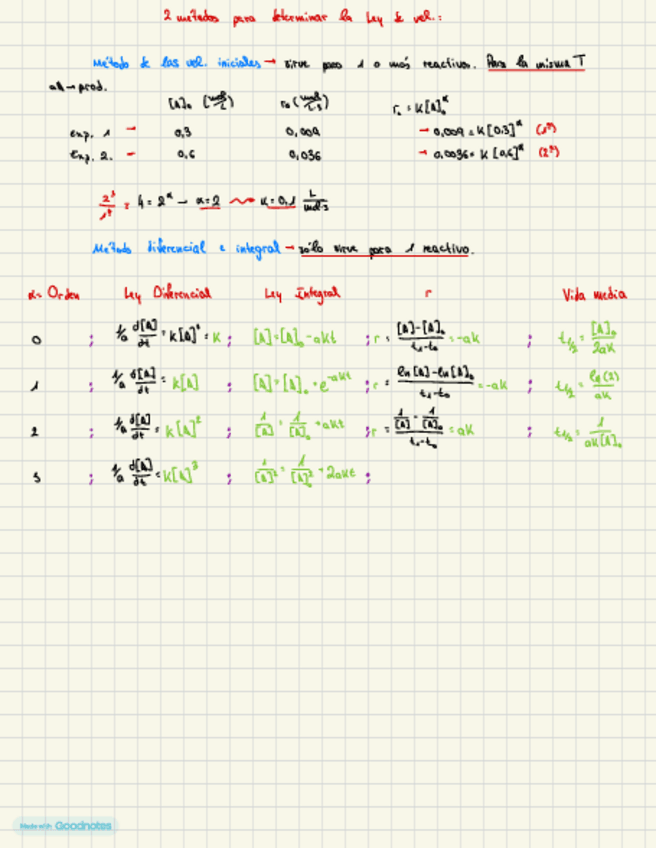 2 métodos para determinar la Ley de vel.:
Método de las vel. iniciales → sirve para 1 o más reactivo. Para la misma T
aA → prod.
[A]₀ (mol/L) r₀ (mol/L·s) r₀ = K[A]₀^α
exp. 1 → 0,3 0,009 → 0,009 = K[0,3]^α (1º)
Exp. 2. → 0,6 0,036 → 0,0036 = K[0,6]^α (2º)
2º/1º = 4 = 2^α → α=2 ⇝ K=0,1 L/mol·s
Método diferencial e integral → sólo sirve para 1 reactivo.
α = Orden Ley Diferencial Ley Integral r Vida media
0 ; 1/a d[A]/dt = K[A]⁰ = K ; [A] = [A]₀ - aKt ; r = [A]-[A]₀/t₁-t₀ = -aK ; t1/2 = [A]₀/2aK
1 ; 1/a d[A]/dt = K[A] ; [A] = [A]₀ · e^-aKt ; r = ln[A]-ln[A]₀/t₁-t₀ = -aK ; t1/2 = ln(2)/aK
2 ; 1/a d[A]/dt = K[A]² ; 1/[A] = 1/[A]₀ + aKt ; r = 1/[A] - 1/[A]₀/t₁-t₀ = aK ; t1/2 = 1/aK[A]₀
3 ; 1/a d[A]/dt = K[A]³ ; 1/[A]² = 1/[A]₀² + 2aKt ;
Made with Goodnotes